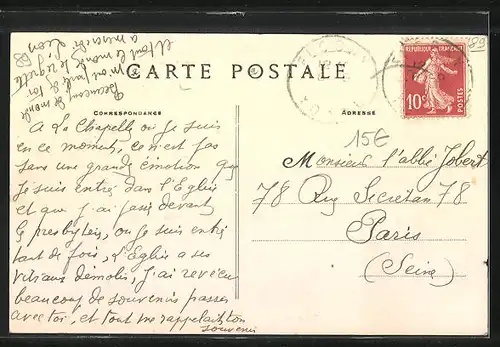 CARTE POSTALE
CORRESPONDANCE
ADRESSE
REPUBLIQUE FRANCAISE
10c
POSTES
89
15€
A La Chapelle où je suis
en ce moment, ce n'est pas
sans une grande émotion que
je suis entré dans l'Eglise
et que j'ai passé devant
le presbytère, où je suis entré
tant de fois, L'Eglise a ses
vitraux démolis, j'ai revécu
beaucoup de souvenirs passés
avec toi, et tout me rappelait ton
souvenir
Beaucoup de monde
m'ont parlé de toi
et tout le monde te regrette
a merci Léon
Monsieur l'abbé Jobert
78 Rue Secretan 78
Paris
(Seine)